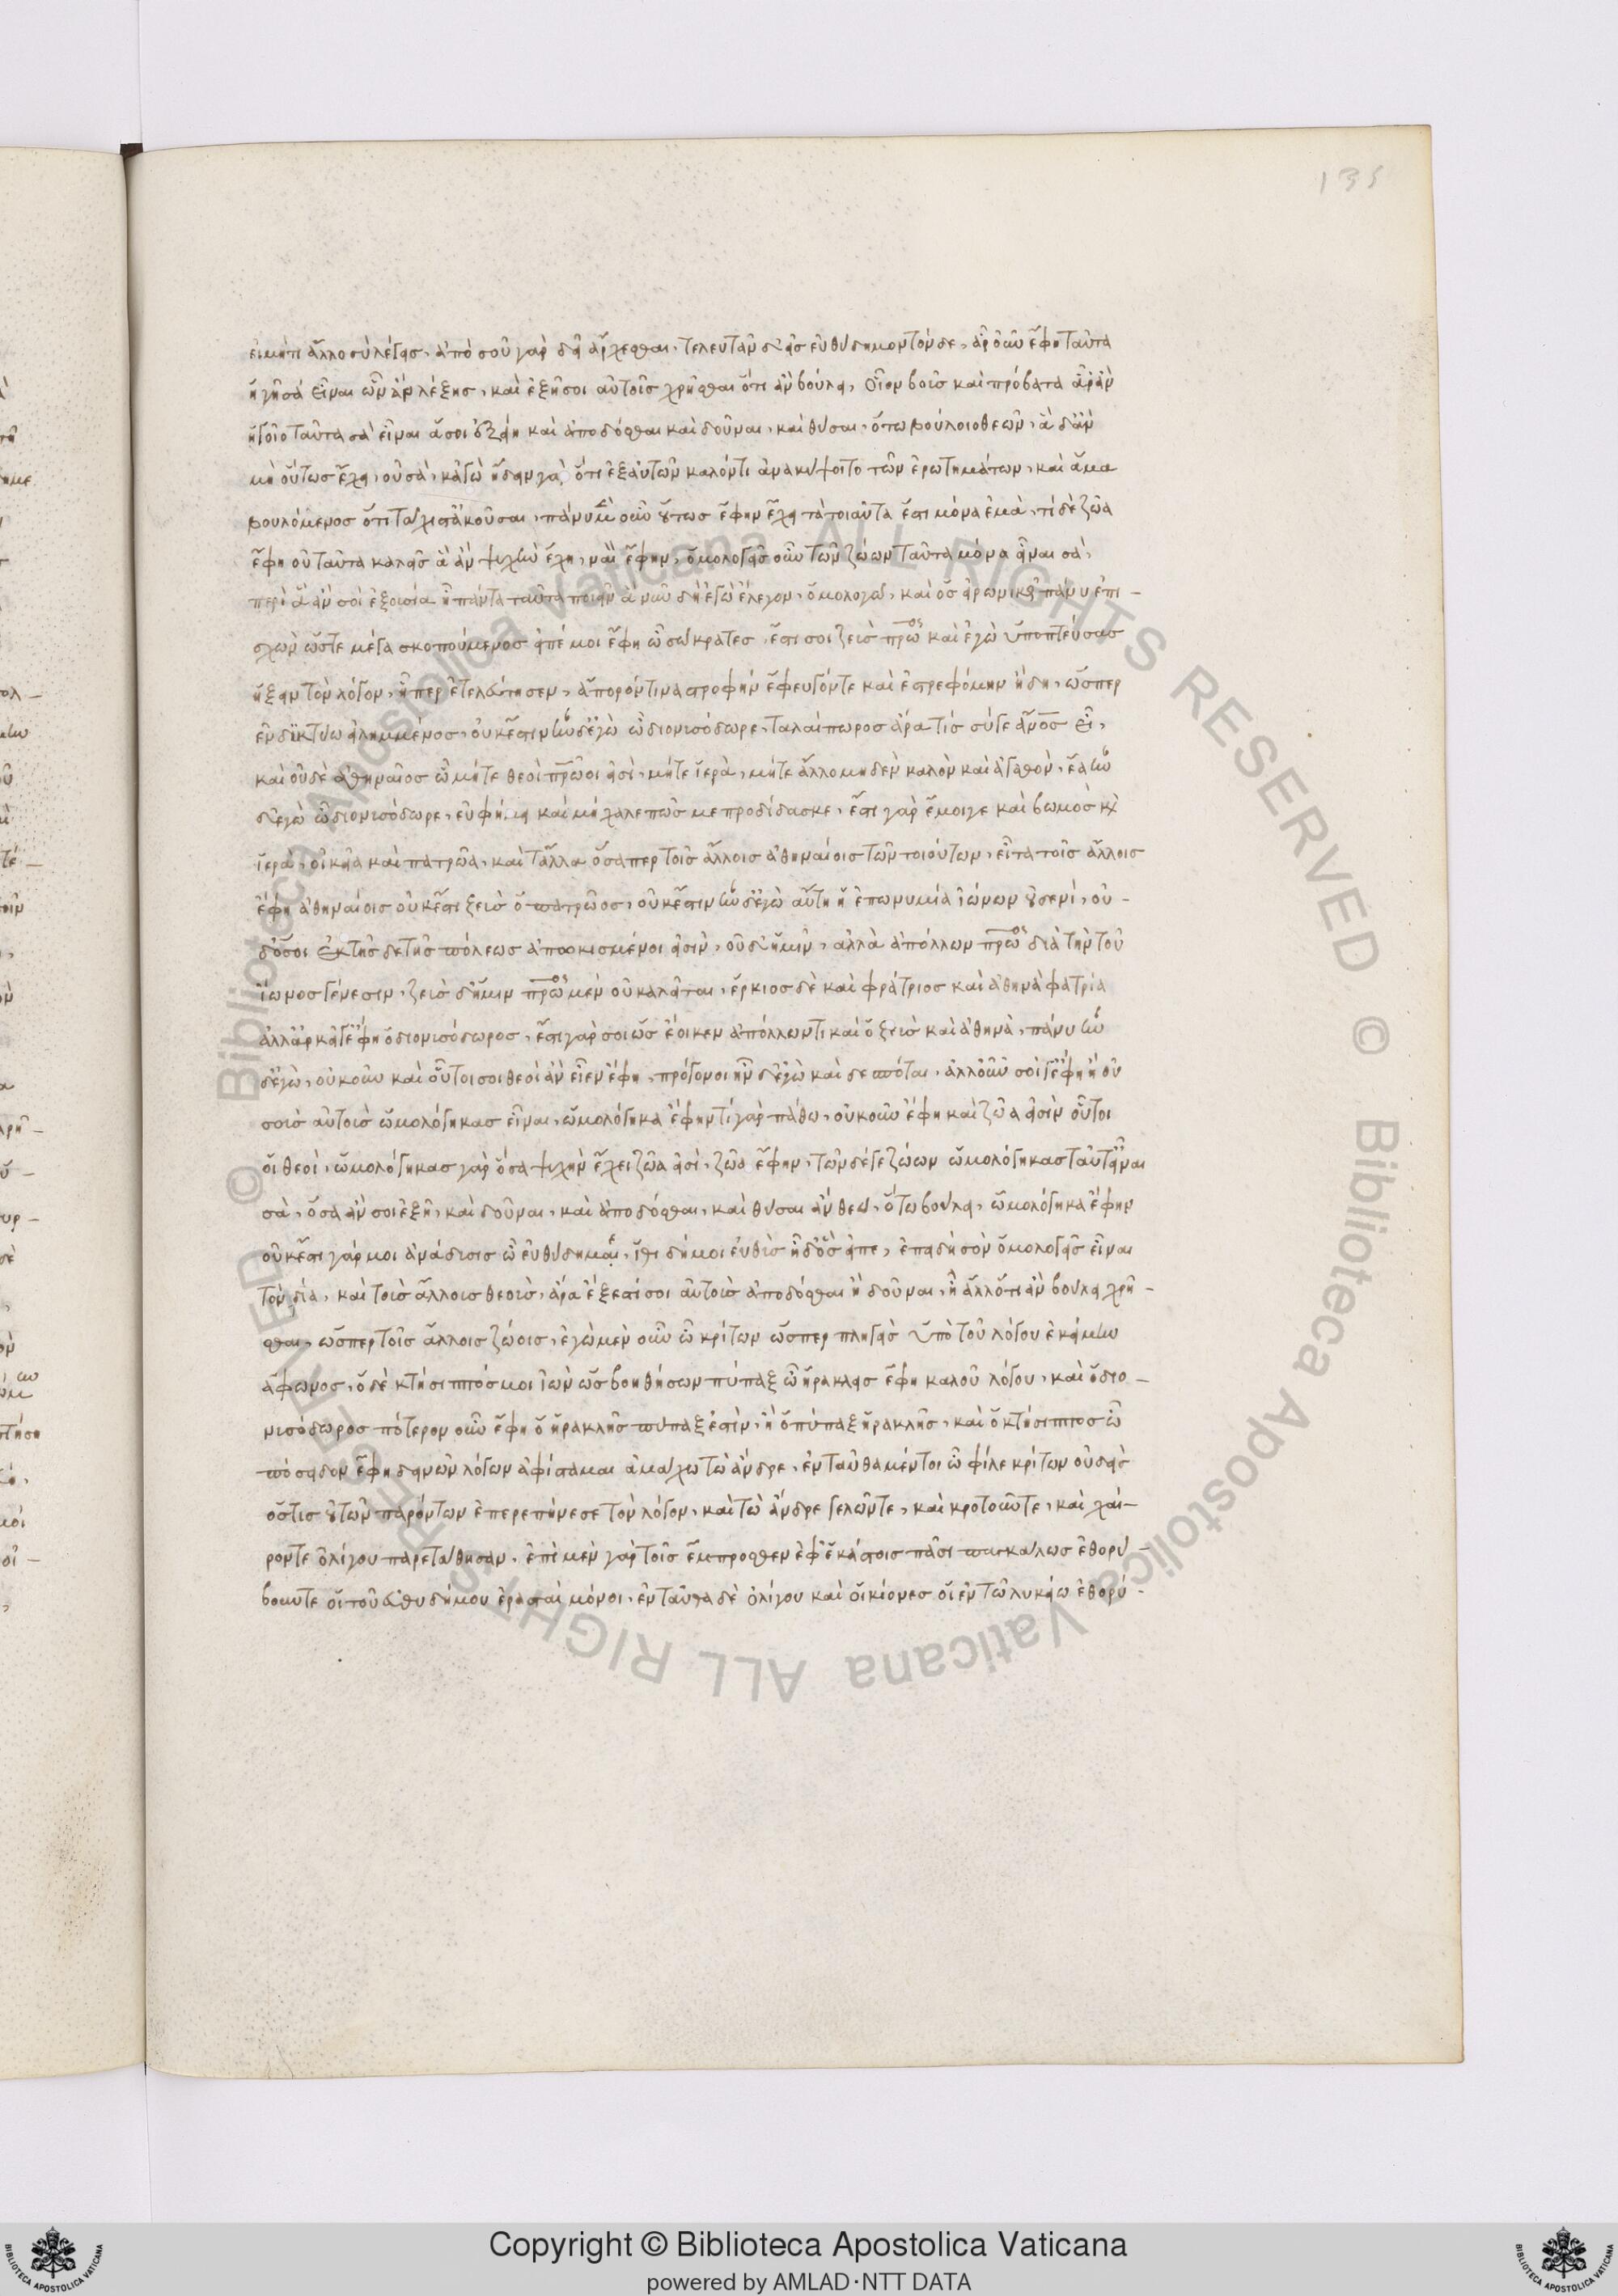 135
εἰ μή τι ἄλλο σὺ λέγεις· ἀπὸ σοῦ γὰρ δεῖ ἄρχεσθαι· τελευτᾶν δ' εἰς εὐθύδημον τόνδε, ἆρ' οὖν ἔφη ταῦτα
ἡγῇ σὰ εἶναι ὧν ἂν λέξῃς, καὶ ἐξῇ σοι αὐτοῖς χρῆσθαι ὅτι ἂν βούλῃ, οἷον βοῦς καὶ πρόβατα ἆρ' ἂν
ἡγοῖο ταῦτα σὰ εἶναι ἅ σοι ἐξείη καὶ ἀποδόσθαι καὶ δοῦναι, καὶ θῦσαι, ὅτω βούλοιο θεῶν, ἃ δ' ἂν
μὴ οὕτως ἔχῃ, οὐ σά, κἀγὼ ᾔδειν γὰρ ὅτι ἐξ αὐτῶν καλόν τι ἀνακύψοιτο τῶν ἐρωτημάτων, καὶ ἅμα
βουλόμενος ὅτι τάχιστ' ἀκοῦσαι, πάνυ μὲν οὖν οὕτως ἔφην ἔχει τὰ τοιαῦτα ἔστι μόνα ἐμά, τί δὲ ζῶα
ἔφη οὐ ταῦτα καλεῖς ἃ ἂν ψυχὴν ἔχῃ, ναὶ ἔφην, ὁμολογεῖς οὖν τῶν ζώων ταῦτα μόνα εἶναι σά,
περὶ ἃ ἄν σοι ἐξουσία ᾖ πάντα ταῦτα ποιεῖν ἃ νῦν δὴ ἐγὼ ἔλεγον, ὁμολογῶ, καὶ ὃς εἰρωνικῶς πάνυ ἐπι-
σχὼν ὥς τι μέγα σκοπούμενος εἰπέ μοι ἔφη ὦ σώκρατες, ἔστι σοι ζεὺς πρῶος καὶ ἐγὼ ὑποπτεύσας
ἥξειν τὸν λόγον, ᾗπερ ἐτελεύτησεν, ἄπορόν τινα στροφὴν ἔφευγόν τε καὶ ἐστρεφόμην ἤδη, ὥσπερ
ἐν δικτύω εἰλημμένος, οὐκ ἔστιν ἦν δ' ἐγὼ ὦ διονυσόδωρε, ταλαίπωρος ἄρα τίς σύ γε ἄνος εἶ,
καὶ οὐδὲ ἀθηναῖος ὧ μήτε θεοὶ πρῶοι εἰσί, μήτε ἱερά, μήτε ἄλλο μηδὲν καλὸν καὶ ἀγαθόν, ἔα ἦν
δ' ἐγὼ ὦ διονυσόδωρε, εὐφήμει καὶ μὴ χαλεπῶς με προδίδασκε, ἔστι γὰρ ἔμοιγε καὶ βωμοὶ καὶ
ἱερά, οἰκεῖα καὶ πατρῶα, καὶ τἄλλα ὅσαπερ τοῖς ἄλλοις ἀθηναίοις τῶν τοιούτων, εἶτα τοῖς ἄλλοις
ἔφη ἀθηναίοις οὐκ ἔστι ζεὺς ὁ πατρῶος, οὐκ ἔστιν ἦν δ' ἐγὼ αὕτη ἡ ἐπωνυμία ἰώνων οὐδενί, οὔ-
θ' ὅσοι ἐκ τῆσδε τῆς πόλεως ἀπωκισμένοι εἰσίν, οὔθ' ἡμῖν, ἀλλὰ ἀπόλλων πρῶος διὰ τὴν τοῦ
ἴωνος γένεσιν, ζεὺς δ' ἡμῖν πρῶος μὲν οὐ καλεῖται, ἕρκιος δὲ καὶ φράτριος καὶ ἀθηνᾶ φατρία
ἀλλ' ἀρκεῖ γ' ἔφη ὁ διονυσόδωρος, ἔστι γάρ σοι ὡς ἔοικεν ἀπόλλων τι καὶ ὁ ζεὺς καὶ ἀθηνᾶ, πάνυ ἦν
δ' ἐγώ, οὐκοῦν καὶ οὗτοι σοι θεοὶ ἂν εἶεν ἔφη, πρόγονοι ἦν δ' ἐγὼ καὶ δεσπόται, ἀλλ' οὖν σοί γ' ἔφη ἢ οὐ
σοὺς αὐτοὺς ὡμολόγηκας εἶναι, ὡμολόγηκα ἔφην τί γὰρ πάθω, οὐκοῦν ἔφη καὶ ζῶα εἰσὶν οὗτοι
οἱ θεοί, ὡμολόγηκας γὰρ ὅσα ψυχὴν ἔχει ζῶα εἰσί, ζῶα ἔφην, τῶν δέ γε ζώων ὡμολόγηκας ταῦτ' εἶναι
σά, ὅσα ἄν σοι ἐξῇ, καὶ δοῦναι, καὶ ἀποδόσθαι, καὶ θῦσαι ἂν θεῶ, ὅτω βούλῃ, ὡμολόγηκα ἔφην
οὐκ ἔστι γάρ μοι ἀνάδυσις ὦ εὐθύδημε, ἴθι δή μοι εὐθὺς ἦ δ' ὃς εἰπέ, ἐπειδὴ σὸν ὁμολογεῖς εἶναι
τὸν δία, καὶ τοὺς ἄλλους θεούς, ἆρα ἔξεστί σοι αὐτοὺς ἀποδόσθαι ἢ δοῦναι, ἢ ἄλλ' ὅτι ἂν βούλῃ χρῆ-
σθαι, ὥσπερ τοῖς ἄλλοις ζώοις, ἐγὼ μὲν οὖν ὦ κρίτων ὥσπερ πληγεὶς ὑπὸ τοῦ λόγου ἐκείμην
ἄφωνος, ὁ δὲ κτήσιππός μοι ἰὼν ὡς βοηθήσων πύπαξ ὦ ἥρακλεις ἔφη καλοῦ λόγου, καὶ ὁ διο-
νυσόδωρος πότερον οὖν ἔφη ὁ ἡρακλῆς πύπαξ ἐστίν, ἢ ὁ πύπαξ ἡρακλῆς, καὶ ὁ κτήσιππος ὦ
πόσειδον ἔφη δεινῶν λόγων ἀφίσταμαι ἀμάχω τὼ ἄνδρε, ἐνταῦθα μέντοι ὦ φίλε κρίτων οὐδεὶς
ὅστις οὐ τῶν παρόντων ἐπερεπήνεσε τὸν λόγον, καὶ τὼ ἄνδρε γελῶντε, καὶ κροτοῦντε, καὶ χαί-
ροντε ὀλίγου παρετάθησαν, ἐπὶ μὲν γὰρ τοῖς ἔμπροσθεν ἐφ' ἑκάστοις πᾶσι παγκάλως ἐθορυ-
βουντε οἱ τοῦ εὐθυδήμου ἐρασταὶ μόνοι, ἐνταῦθα δὲ ὀλίγου καὶ οἱ κίονες οἱ ἐν τῶ λυκείω ἐθορύ-
Copyright © Biblioteca Apostolica Vaticana
powered by AMLAD·NTT DATA